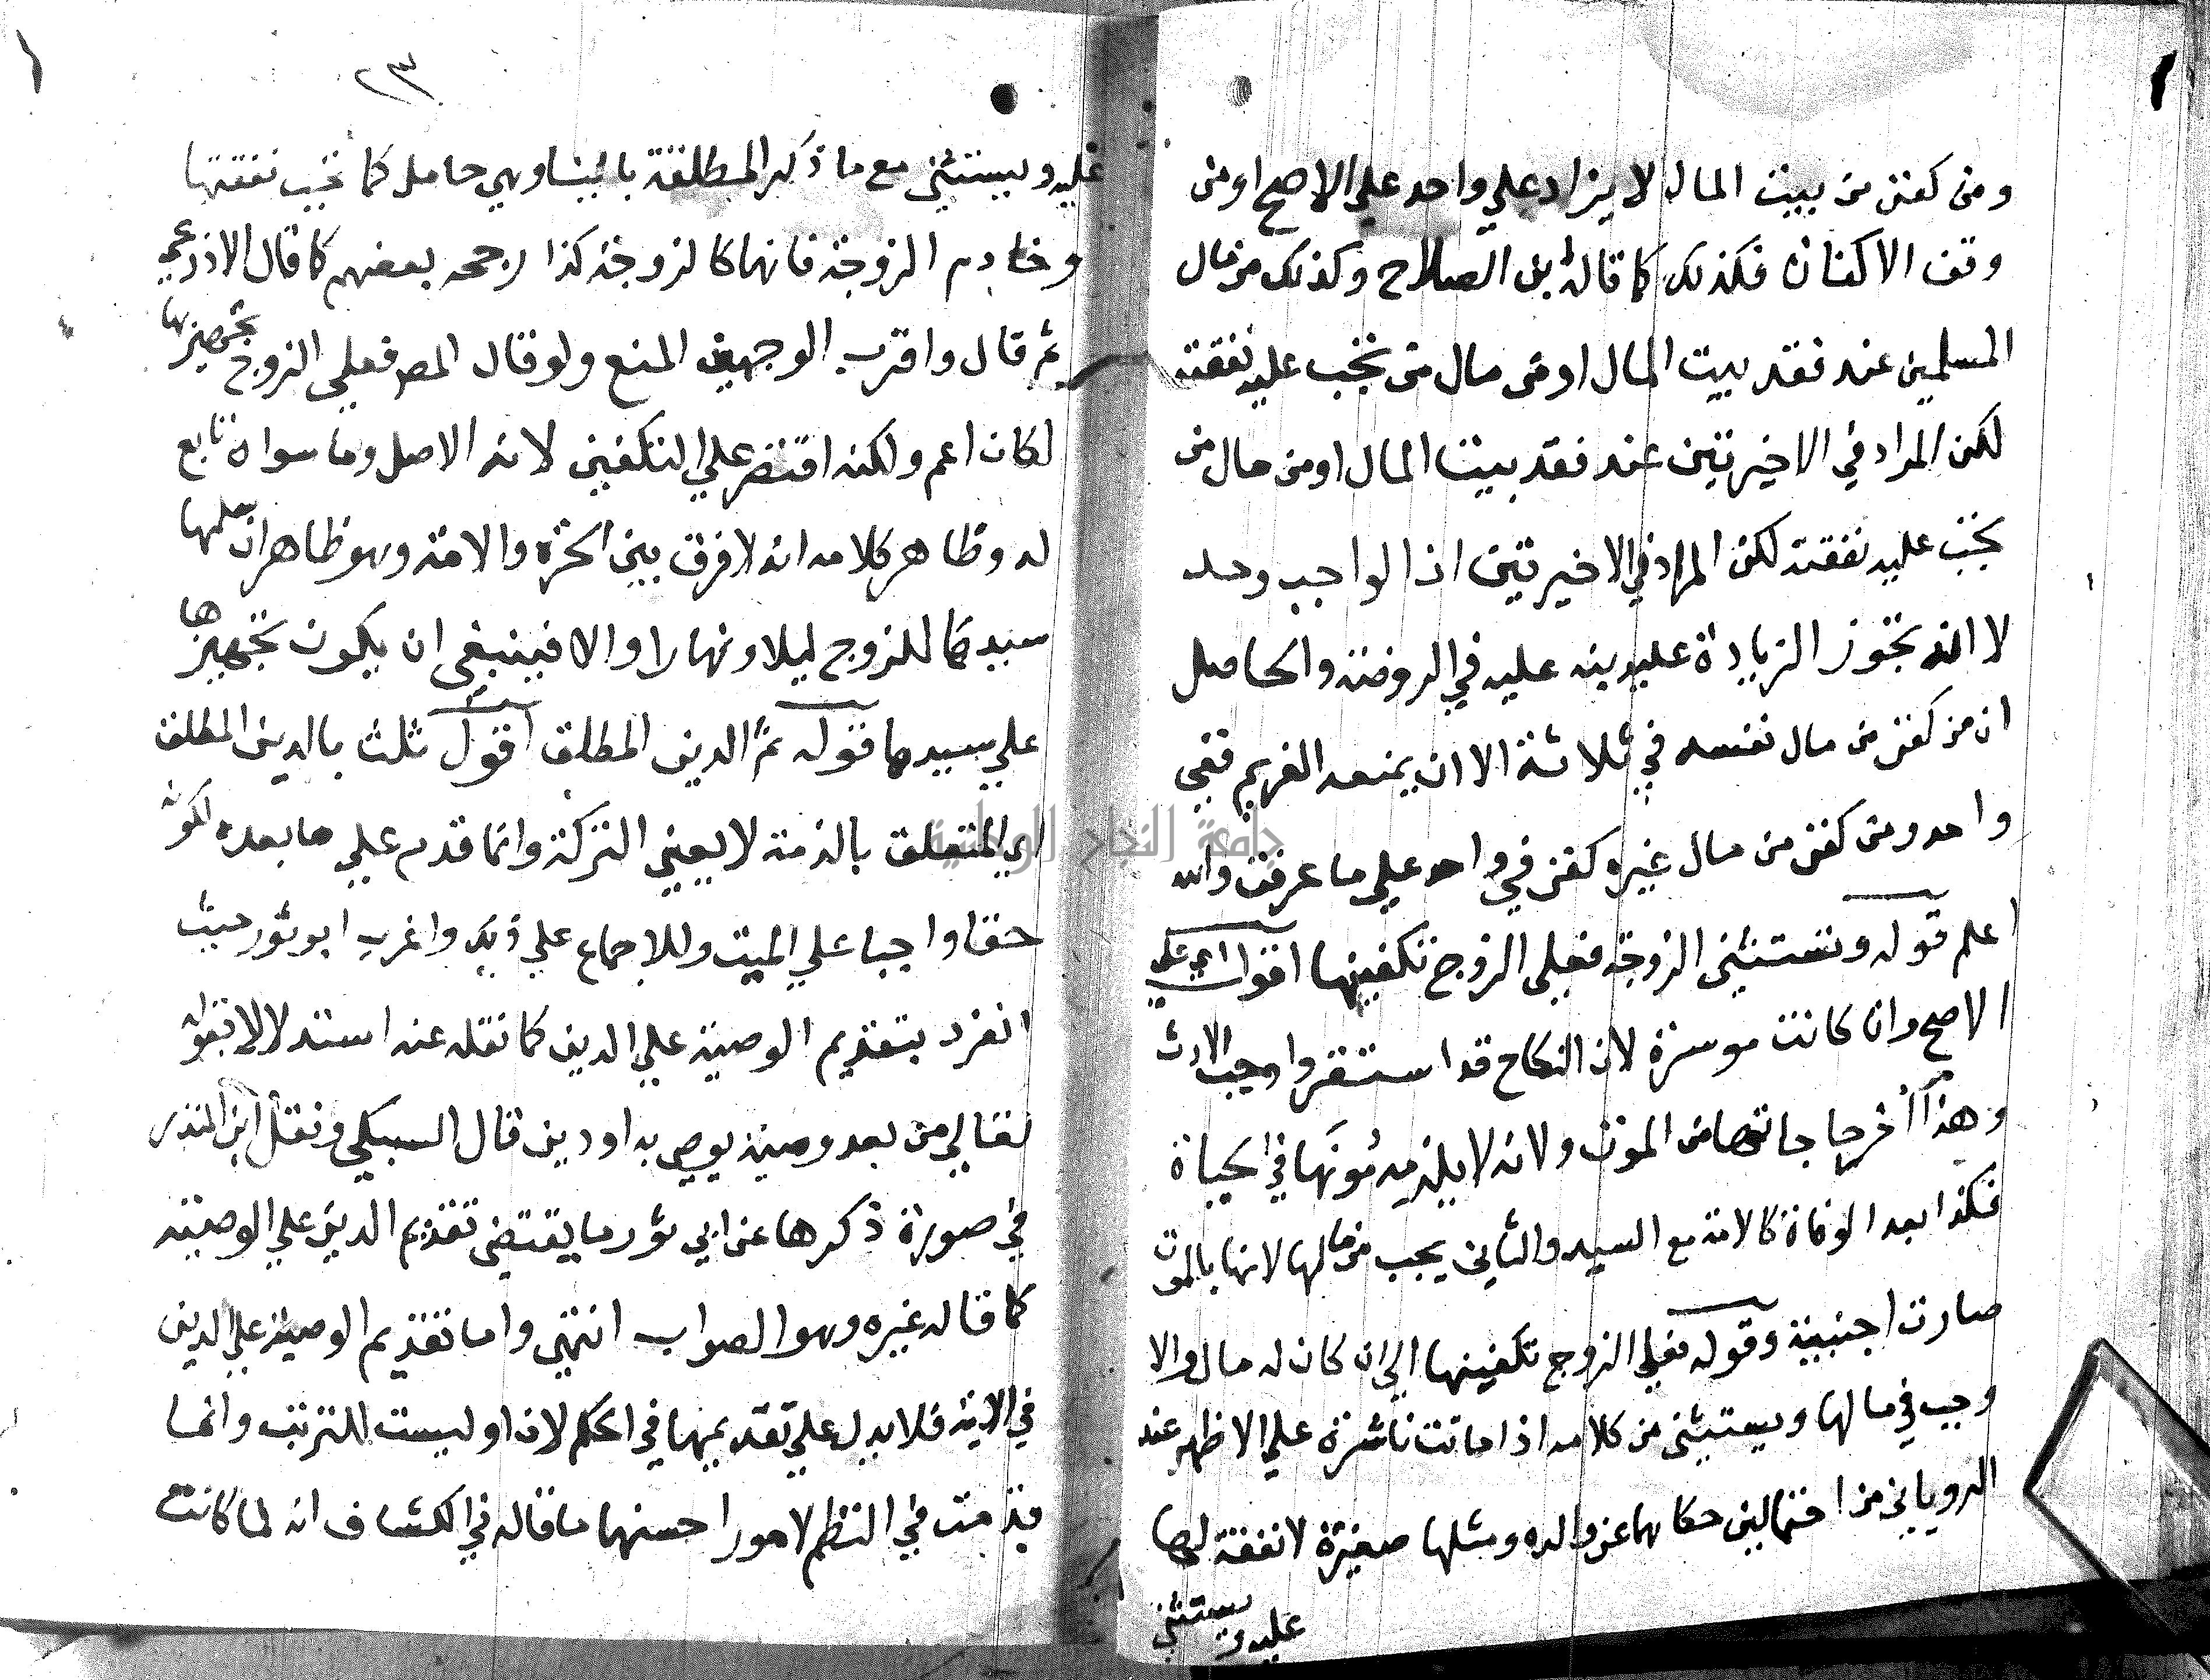 ومن كفن من بيت المال لا يزاد علي واحد علي الاصح او من
وقف الاكفان فكذلك كما قاله بن الصلاح وكذلك من مال
المسلمين عند فقد بيت المال او من مال من تجب عليه نفقته
لكن المراد في الاخيرتين عند فقد بيت المال او من مال من
تجب عليه نفقته لكن المراد في الاخيرتين ان الواجب وحد
لا انه تجوز الزيادة عليه عليه في الروضة والحاصل
ان من كفن من مال نفسه في ثلاثة الا ان يمنعه الغريم ففي
واحد ومن كفن من مال غيره كفن في واحد علي ما عرفت والله
اعلم قوله وتستثني الزوجة فعلي الزوج تكفينها اقول اي علي
الاصح وان كانت موسرة لان النكاح قد استقر واوجب الارث
وهذا من الموت ولانه لا يلزمه مؤنها في الحياة
فكذا بعد الوفاة كالامة مع السيد والثاني يجب من مالها لانها بالموت
صارت اجنبية وقوله فعلي الزوج تكفينها الي ان كان له مال والا
وجب في مالها ويستثني من كلامه اذا ماتت ناشزة علي الاظهر عند
الروياني من احتمالين حكاهما عن والده ومثلها صغيرة لا نفقة لها
عليه ويستثني
٢٣
عليه ويستثني مع ما ذكر المطلقة باينا وهي حامل كما تجب نفقتها
وخادم الزوجة فانها كالزوجة كذا رجحه بعضهم كما قال الاذرعي
ثم قال واقرب الوجهين المنع ولو قال المص فعلي الزوج تجهيزها
لكان اعم ولكنه اقتصر علي التكفين لانه الاصل وما سواه تابع
له وظاهر كلامه انه لا فرق بين الحرة والامة وهو ظاهر ان سلمها
سيدها للزوج ليلا ونهارا والا فينبغي ان يكون تجهيزها
علي سيدها قوله ثم الدين المطلق اقول ثلث بالدين المطلق
اي المتعلق بالذمة لا بعين التركة وانما قدم علي ما بعده لكونه
حقا واجبا علي الميت وللاجماع علي ذلك واغرب ابو ثور حيث
انفرد بتقديم الوصية علي الدين كما نقله عنه استدلالا بقوله
تعالي من بعد وصية يوصي به او دين قال السبكي ونقل ابن المنذر
في صورة ذكرها عن ابي ثور ما يقتضي تقديم الدين علي الوصية
كما قاله غيره وهو الصواب انتهي واما تقديم الوصية علي الدين
في الاية فلا يدل علي تقديمها في الحكم لان او ليست للترتيب وانما
قدمت في النظم لامور احسنها ما قاله في الكشاف انه لما كانت
جامعة النجاح الوطنية